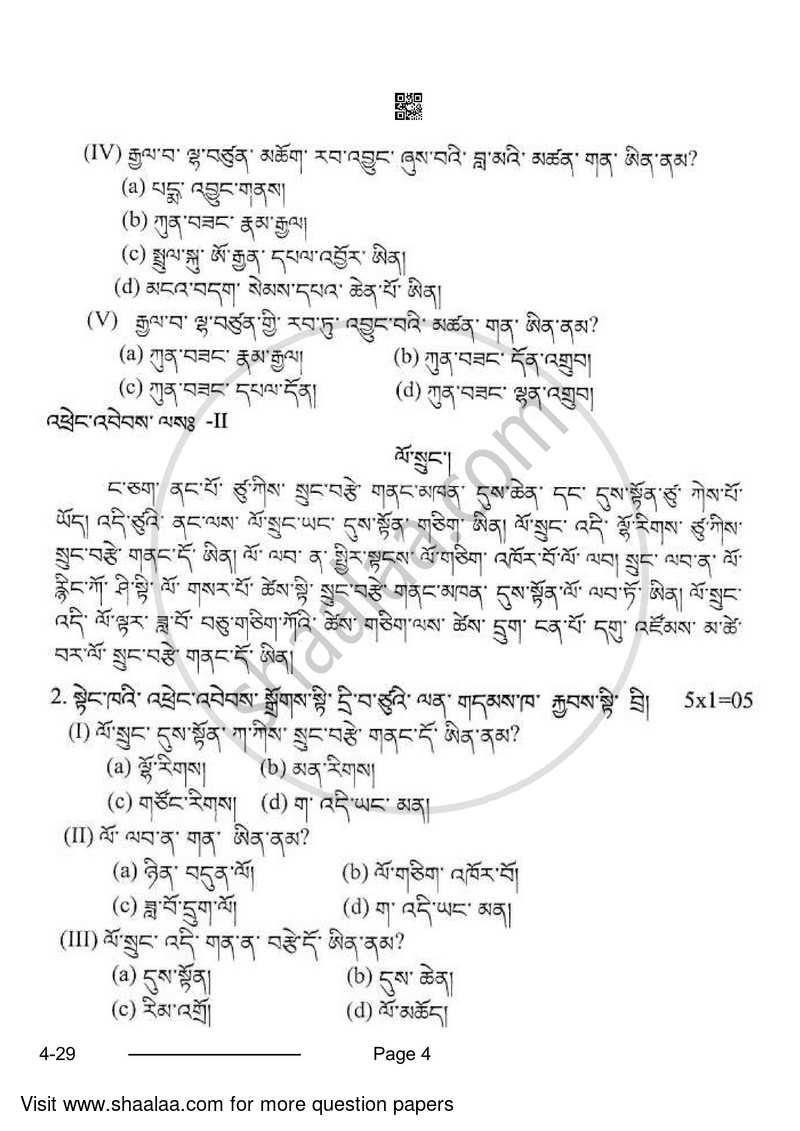 (IV) རྒྱལ་བ་ ལྷ་བཙུན་ མཆོག་ རབ་འབྱུང་ ཞུས་བའི་ བླ་མའི་ མཚན་ གན་ ཨིན་ནམ?
(a) པདྨ་ འབྱུང་གནས།
(b) ཀུན་བཟང་ རྣམ་རྒྱལ།
(c) སྤྲུལ་སྐུ་ ཨོ་རྒྱན་ དཔལ་འབྱོར་ ཨིན།
(d) མངའ་བདག་ སེམས་དཔའ་ ཆེན་པོ་ ཨིན།
(V) རྒྱལ་བ་ ལྷ་བཙུན་གྱི་ རབ་ཏུ་ འབྱུང་བའི་ མཚན་ གན་ ཨིན་ནམ?
(a) ཀུན་བཟང་ རྣམ་རྒྱལ། (b) ཀུན་བཟང་ དོན་འགྲུབ།
(c) ཀུན་བཟང་ དཔལ་དོན། (d) ཀུན་བཟང་ ལྷན་འགྲུབ།
འཕྲེང་འབེབས་ ལསཿ -II
ལོ་སྲུང་།
ང་ཅག་ ནང་པོ་ ཙུ་ཀིས་ སྲུང་བརྩེ་ གནང་མཁན་ དུས་ཆེན་ དང་ དུས་སྟོན་ཙུ་ ཀེས་པོ་
ཡོད། འདི་ཙུའི་ ནང་ལས་ ལོ་སྲུང་ཡང་ དུས་སྟོན་ གཅིག་ ཨིན། ལོ་སྲུང་ འདི་ ལྷོ་རིགས་ ཙུ་ཀིས་
སྲུང་བརྩེ་ གནང་དོ་ ཨིན། ལོ་ ལབ་ ན་ སྤྱིར་སྟངས་ ལོ་གཅིག་ འཁོར་བོ་ལོ་ ལབ། སྲུང་ ལབ་ན་ ལོ་
རྙིང་ཀོ་ ཤི་སྟི་ ལོ་ གསར་པོ་ ཚེས་སྟི་ སྲུང་བརྩེ་ གནང་མཁན་ དུས་སྟོན་ལོ་ ལབ་ཏོ་ ཨིན། ལོ་སྲུང་
འདི་ ལོ་ལྟར་ ཟླ་བོ་ བཅུ་གཅིག་ཀོའི་ ཚེས་ གཅིག་ལས་ ཚེས་ དྲུག་ ངན་པོ་ དགུ་ འཛོམས་ མ་ཚེ་
བར་ལོ་ སྲུང་བརྩེ་ གནང་དོ་ ཨིན།
2. སྟེང་ཁའི་ འཕྲེང་འབེབས་ སྒྲོགས་སྟི་ དྲི་བ་ཙུའི་ ལན་ གདམས་ཁ་ རྐྱབས་སྟི་ བྲི། 5x1=05
(I) ལོ་སྲུང་ དུས་སྟོན་ ཀ་ཀིས་ སྲུང་བརྩེ་ གནང་དོ་ ཨིན་ནམ?
(a) ལྷོ་རིགས། (b) མན་རིགས།
(c) གཙོང་རིགས། (d) ག་ འདི་ཡང་ མན།
(II) ལོ་ ལབ་ན་ གན་ ཨིན་ནམ?
(a) ཉིན་ བདུན་ལོ། (b) ལོ་གཅིག་ འཁོར་བོ།
(c) ཟླ་བོ་དྲུག་ལོ། (d) ག་ འདི་ཡང་ མན།
(III) ལོ་སྲུང་ འདི་ གན་ན་ བརྩེ་དོ་ ཨིན་ནམ?
(a) དུས་སྟོན། (b) དུས་ ཆེན།
(c) རིམ་འགྲོ། (d) ལོ་མཆོད།
4-29 Page 4
Visit www.shaalaa.com for more question papers
shaalaa.com